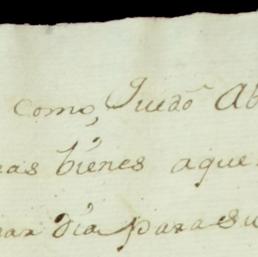 como, Quedo Ab
eas bienes aque
nar dia para su